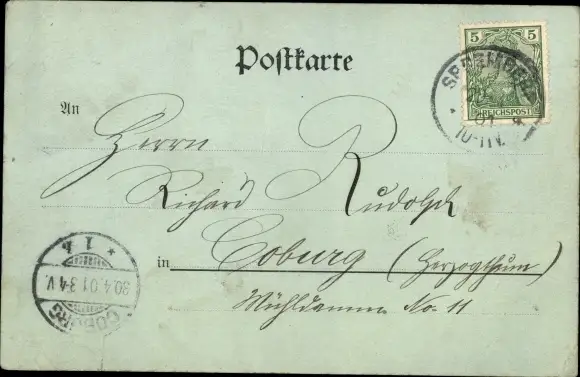 Postkarte
5 5
REICHSPOST
10-11V.
An
Herrn
Richard Rudolph
in Coburg (Herzogthum)
Mühldamm No. 11
COBURG
30.4.01.3-4V.
* 1 b